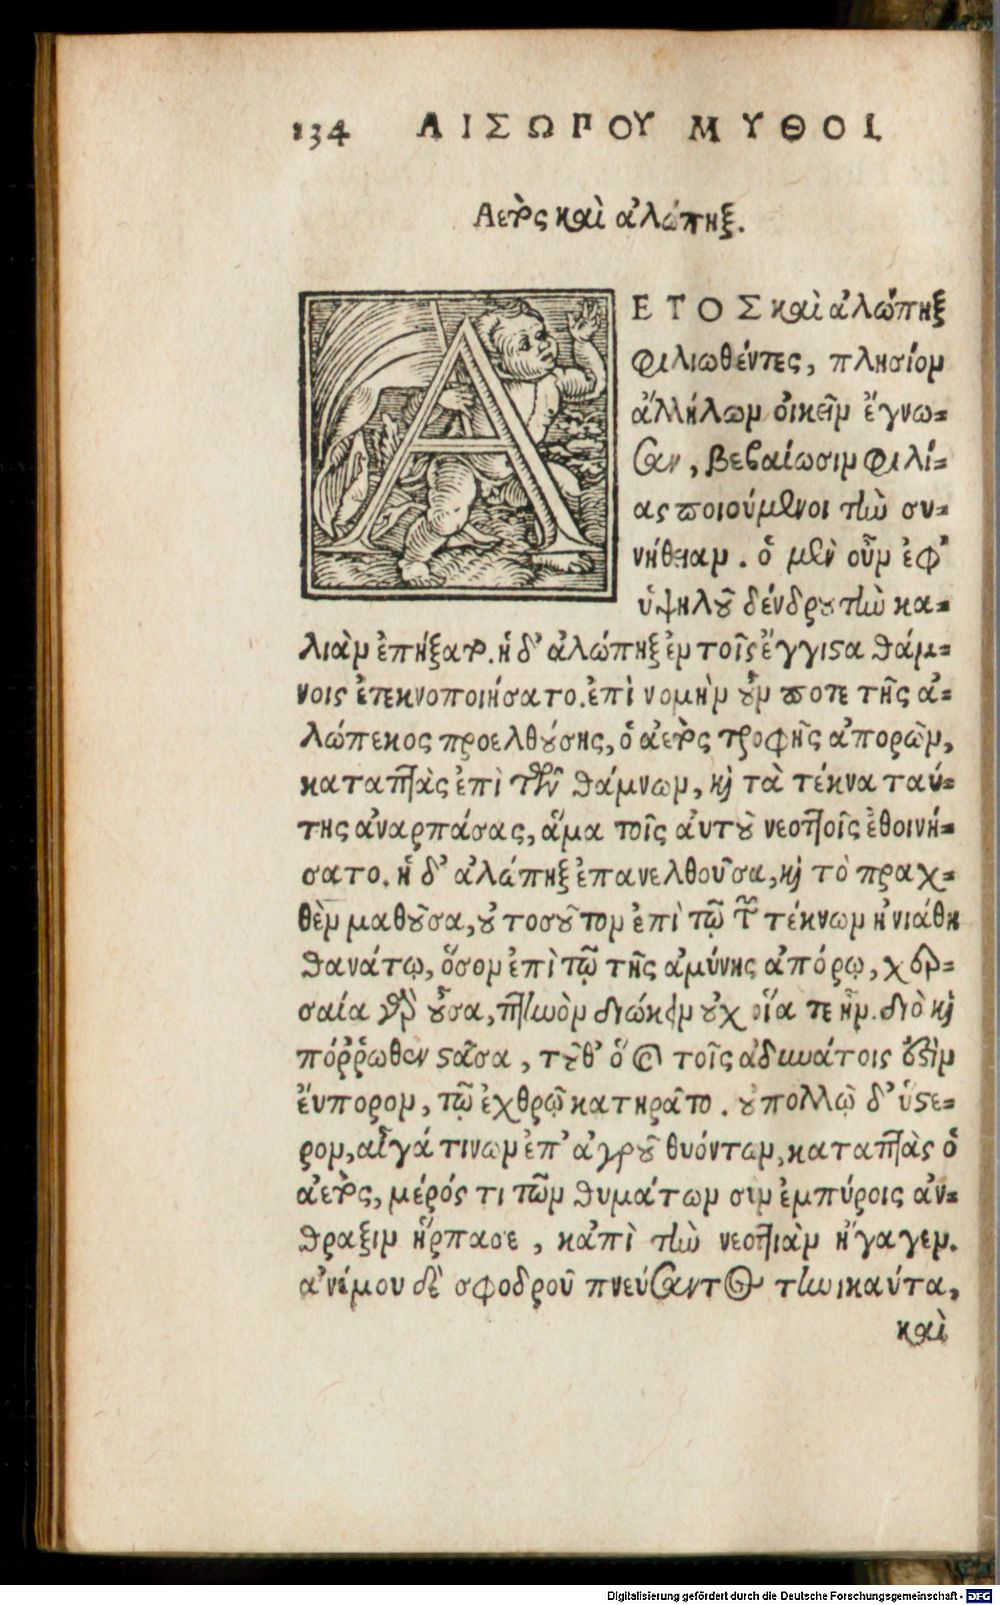 134 ΑΙΣΩΠΟΥ ΜΥΘΟΙ
Αετὸς καὶ ἀλώπηξ.
ΑΕΤΟΣ καὶ ἀλώπηξ
φιλιωθέντες, πλησίον
ἀλλήλων οἰκεῖν ἔγνω-
σαν, βεβαίωσιν φιλί-
ας ποιούμενοι τὴν συν-
νήθειαν. ὁ μὲν οὖν ἐφ’
ὑψηλοῦ δένδρου τὴν κα-
λιὰν ἐπήξατο. ἡ δ’ ἀλώπηξ ἐν τοῖς ἔγγιστα θάμ-
νοις ἐτεκνοποιήσατο. ἐπὶ νομὴν οὖν ποτε τῆς ἀ-
λώπεκος προελθούσης, ὁ ἀετὸς τροφῆς ἀπορῶν,
καταπτὰς ἐπὶ τῶν θάμνων, καὶ τὰ τέκνα ταύ-
της ἀναρπάσας, ἅμα τοῖς αὐτοῦ νεοττοῖς ἐθοινή-
σατο. ἡ δ’ ἀλώπηξ ἐπανελθοῦσα, καὶ τὸ πραχ-
θὲν μαθοῦσα, οὐ τοσοῦτον ἐπὶ τῷ τῶν τέκνων ἠνιάθη
θανάτῳ, ὅσον ἐπὶ τῷ τῆς ἀμύνης ἀπόρῳ, χερ-
σαία γὰρ οὖσα, πτηνὸν διώκειν οὐχ οἵα τε ἦν. διὸ καὶ
πόῤῥωθεν στᾶσα, τοῦθ’ ὃ καὶ τοῖς ἀδυνάτοις ἐστὶν
ἔυπορον, τῷ ἐχθρῷ κατηρᾶτο. οὐ πολλῷ δ’ ὕστε-
ρον, αἶγά τινων ἐπ’ ἀγροῦ θυόντων, καταπτὰς ὁ
ἀετὸς, μέρός τι τῶν θυμάτων σὺν ἐμπύροις ἄν-
θραξιν ἥρπασε, κἀπὶ τὴν νεοττιὰν ἤγαγεν.
ἀνέμου δὲ σφοδροῦ πνεύσαντος τηνικαύτα,
καὶ
Digitalisierung gefördert durch die Deutsche Forschungsgemeinschaft - DFG